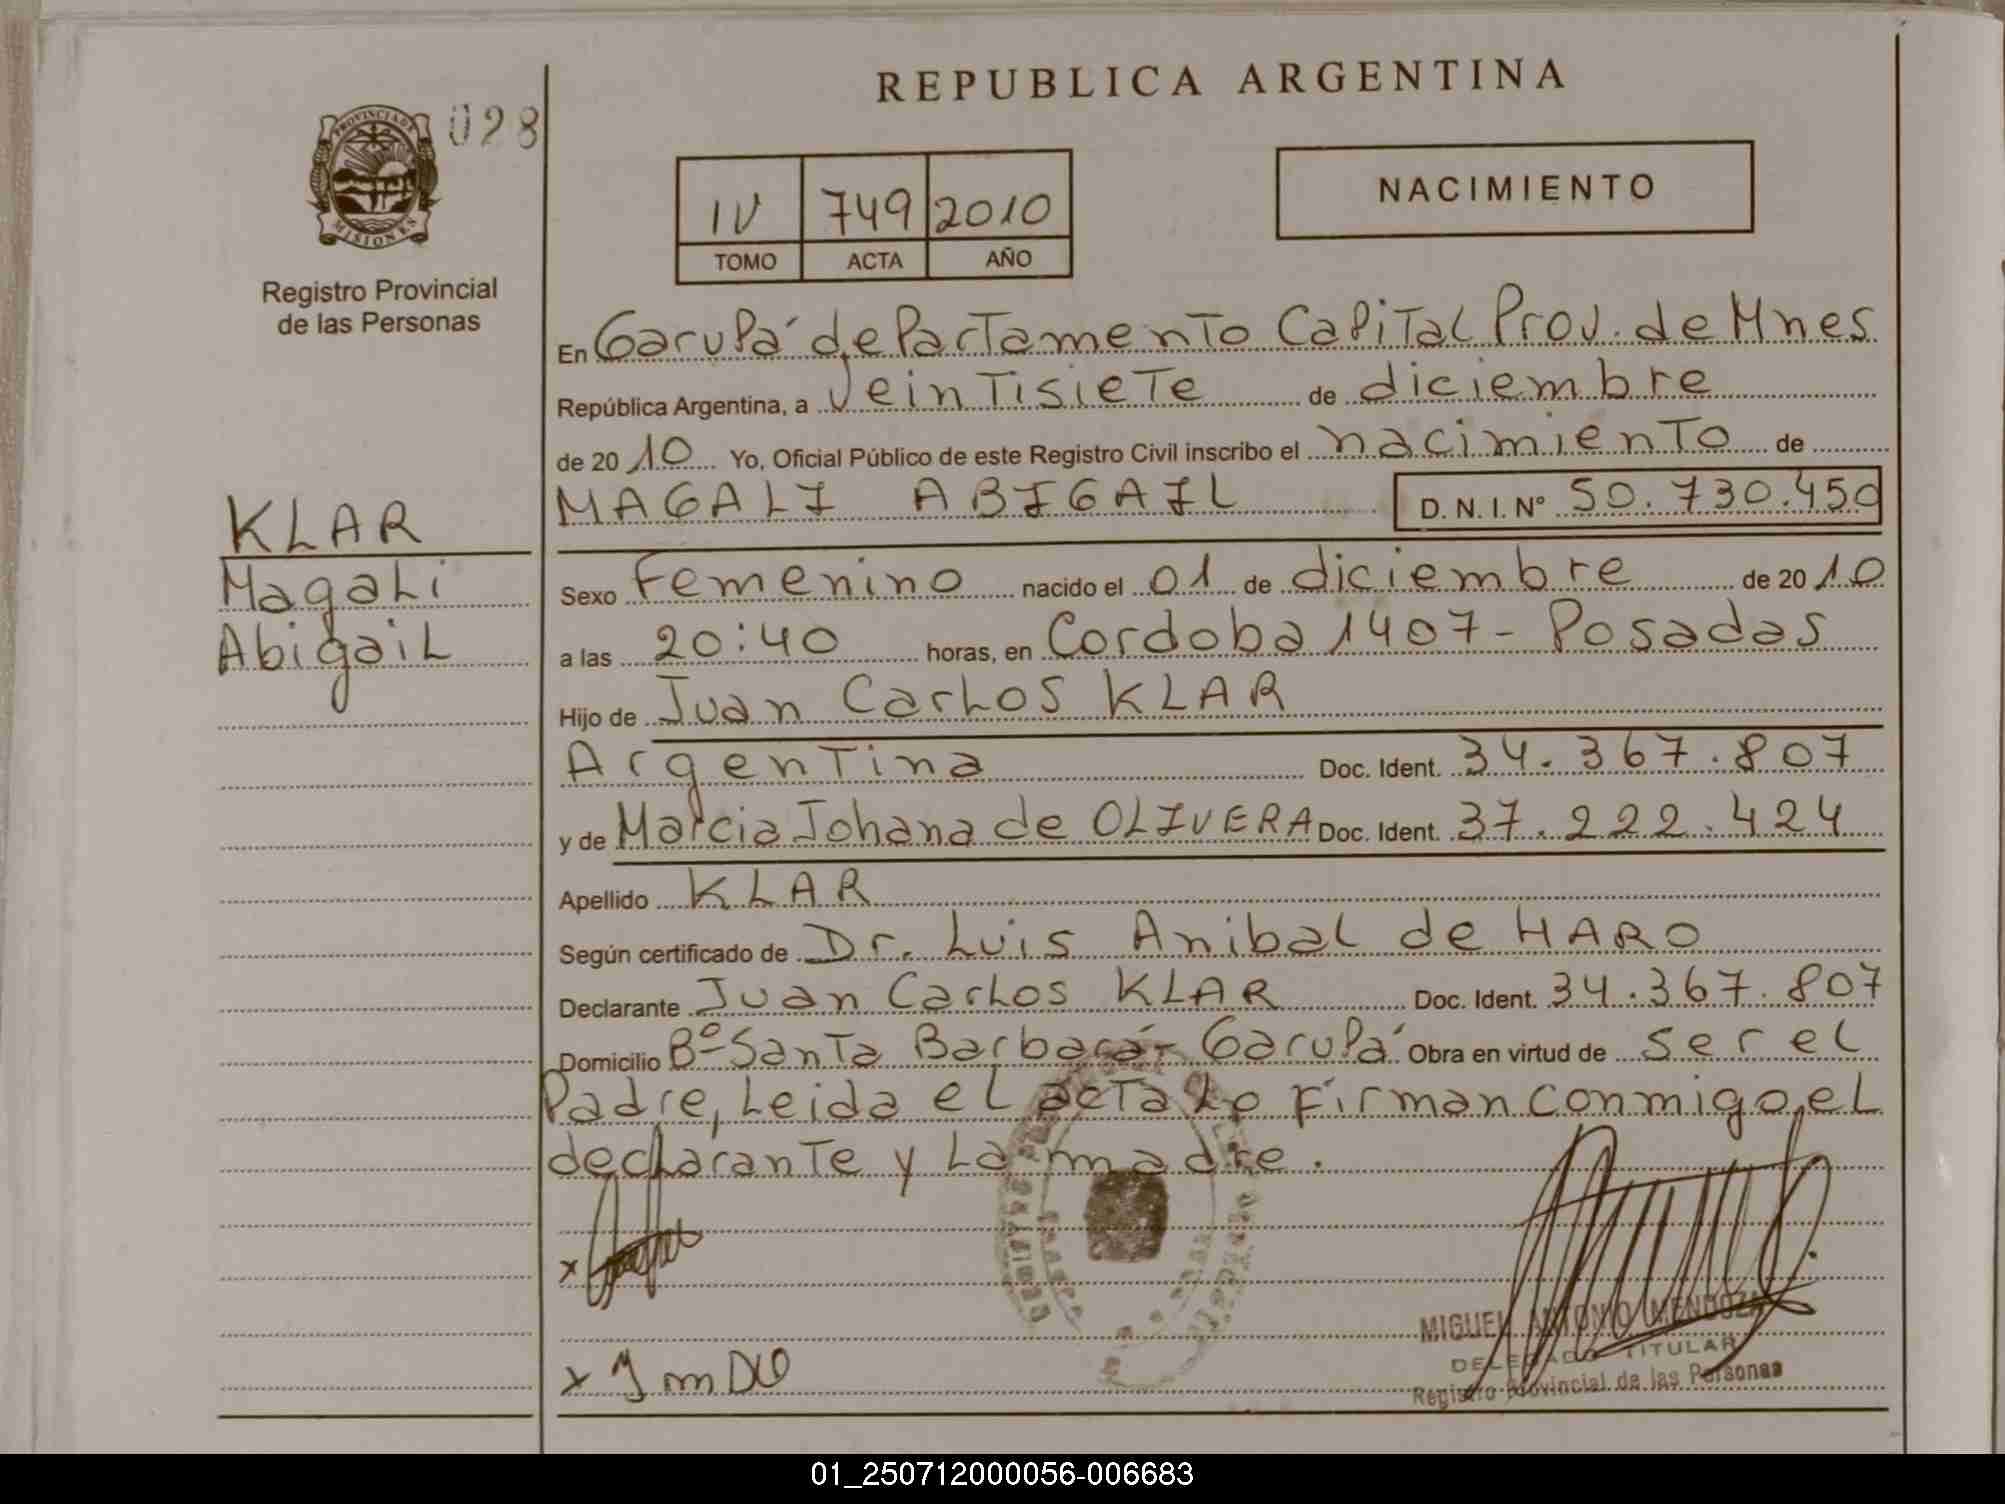 REPUBLICA ARGENTINA
PROVINCIA DE
MISIONES
028
Registro Provincial
de las Personas
IV 749 2010
TOMO ACTA AÑO
NACIMIENTO
En Garupá departamento Capital Prov. de Mnes
República Argentina, a veintisiete de diciembre
de 2010 Yo, Oficial Público de este Registro Civil inscribo el nacimiento de
MAGALI ABIGAIL D. N. I. Nº 50.730.450
KLAR
Magali
Abigail
Sexo Femenino nacido el 01 de diciembre de 2010
a las 20:40 horas, en Cordoba 1407 - Posadas
Hijo de Juan Carlos KLAR
Argentina Doc. Ident. 34.367.807
y de Marcia Johana de OLIVERA Doc. Ident. 37.222.424
Apellido KLAR
Según certificado de Dr. Luis Anibal de HARO
Declarante Juan Carlos KLAR Doc. Ident. 34.367.807
Domicilio Bº Santa Barbara - Garupá Obra en virtud de ser el
Padre, Leida el acta Lo firman conmigo, el
declarante y La madre.
x
x JmDO
MIGUEL ANTONIO MENDOZA
DELEGADO TITULAR
Registro Provincial de las Personas
01_250712000056-006683